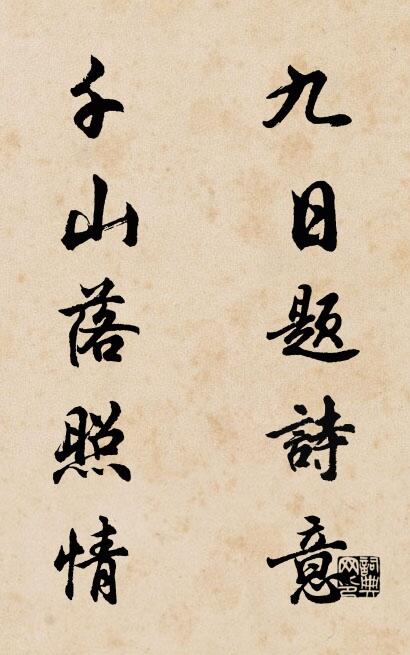 九日题詩意
千山落照情
詞典网